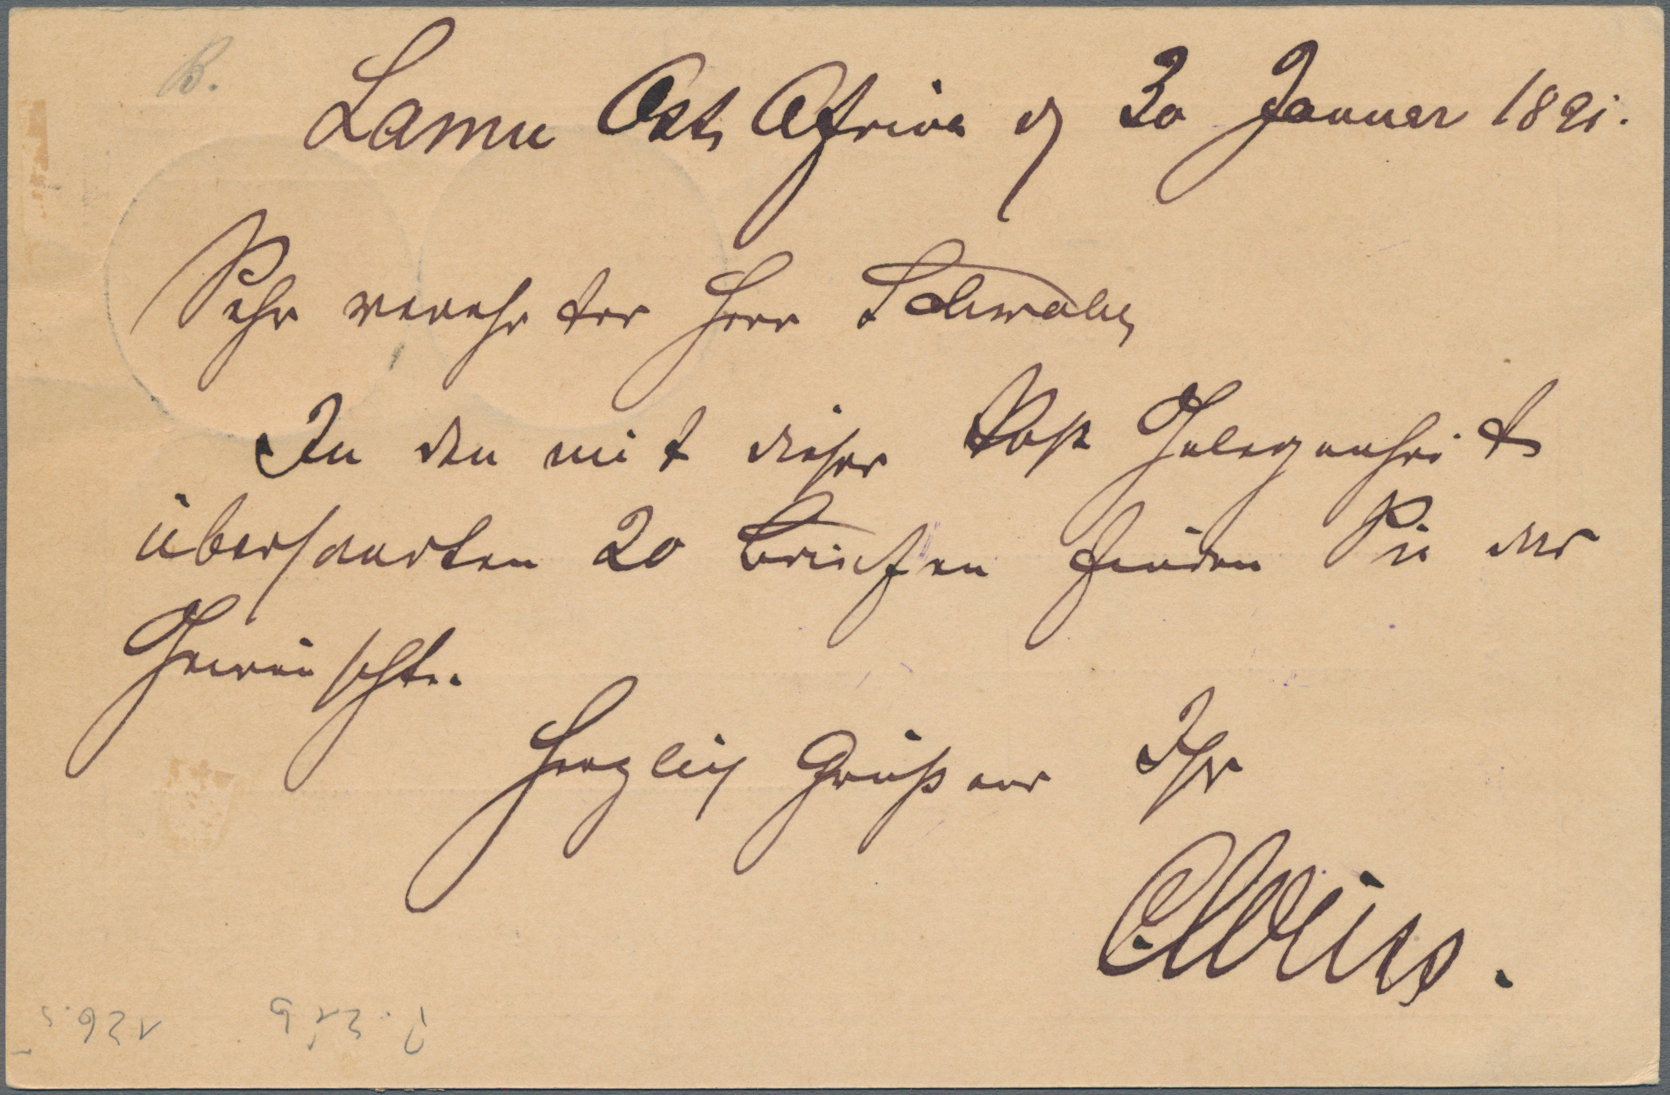 Lamu Ost Afrika d 30 Januar 1891.
Sehr verehrter Herr Schwabe
In den mit dieser Post Gelegenheit
übersandten 20 Briefen finden Sie das
Gewünschte.
Herzlich Grüßend Ihr